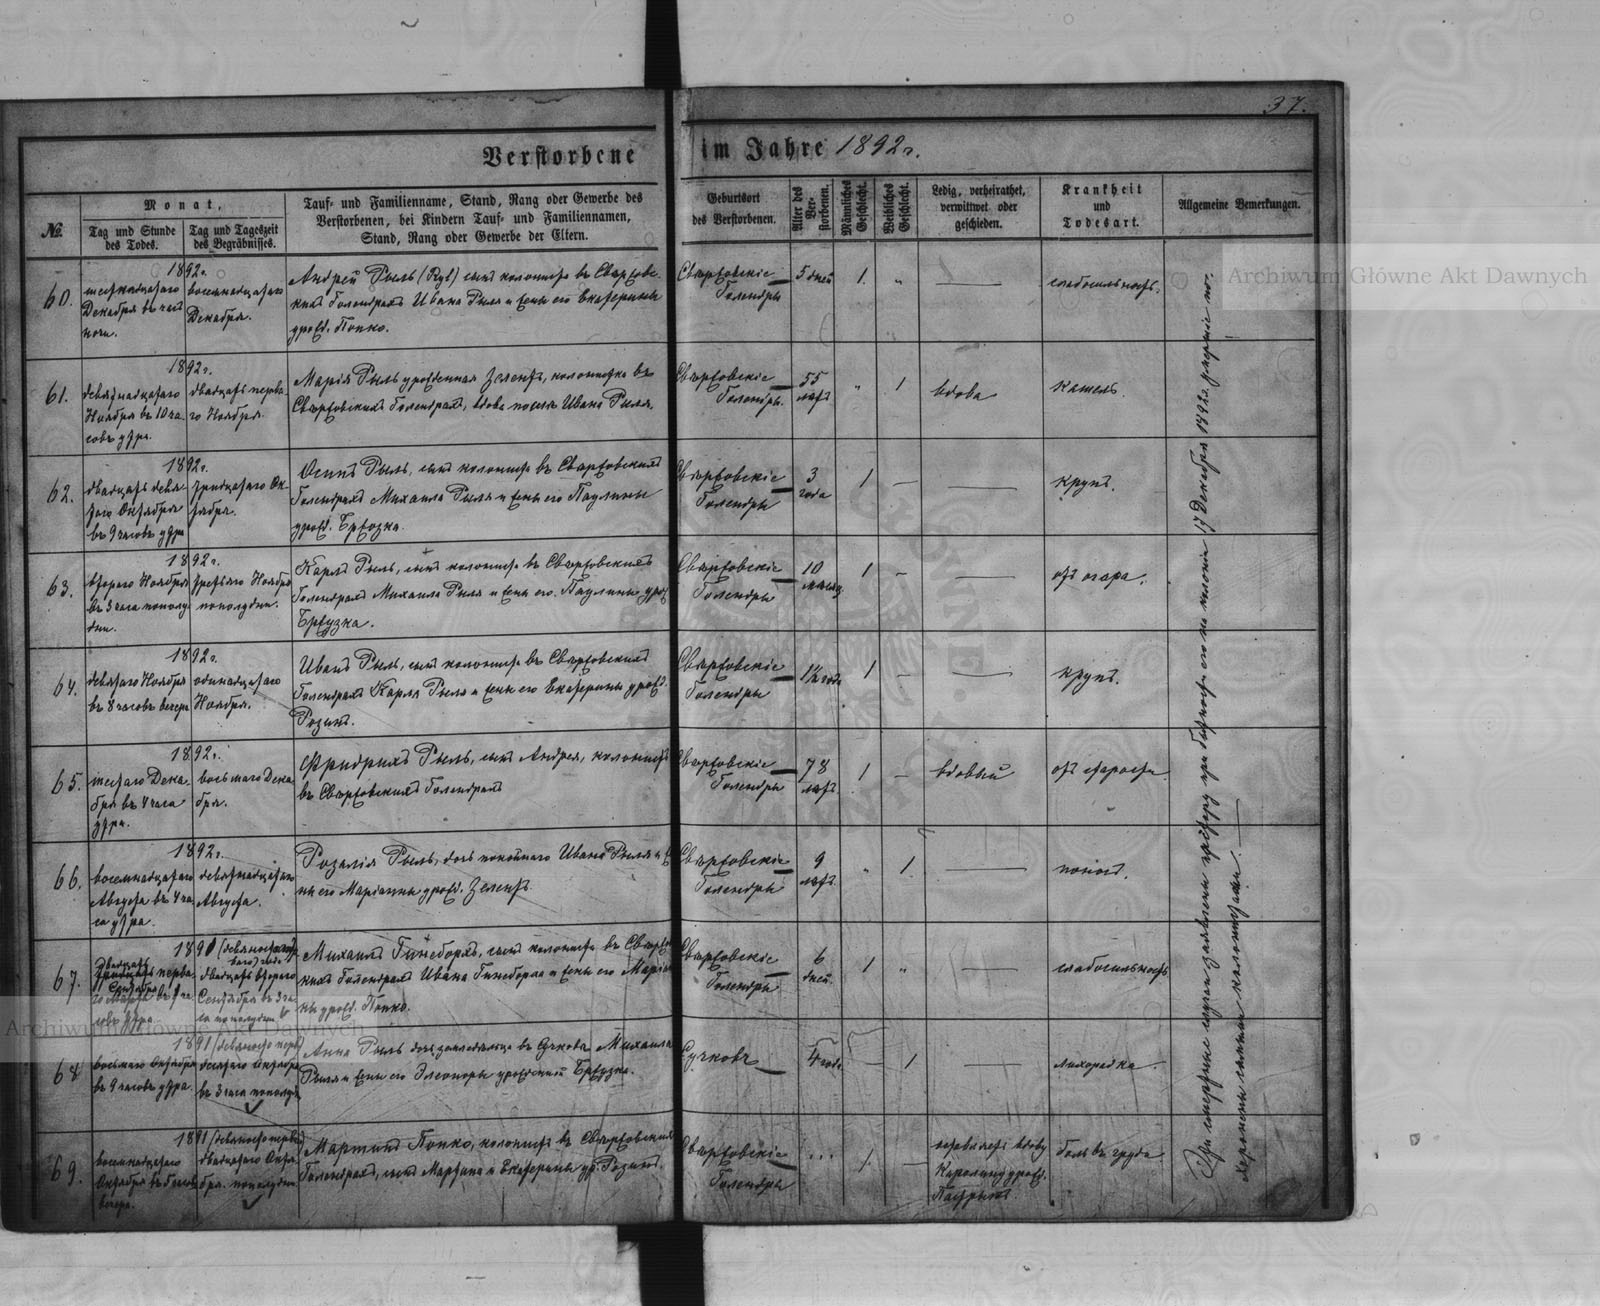 37.
Verstorbene im Jahre 1892 г.
№.
Monat,
Tag und Stunde des Todes.
Tag und Tageszeit des Begräbnisses.
Tauf- und Familienname, Stand, Rang oder Gewerbe des
Verstorbenen, bei Kindern Tauf- und Familiennamen,
Stand, Rang oder Gewerbe der Eltern.
Geburtsort
des Verstorbenen.
Alter des Ver-
storbenen.
Männliches
Geschlecht.
Weibliches
Geschlecht.
Ledig, verheirathet,
verwittwet oder
geschieden.
Krankheit
und
Todesart.
Allgemeine Bemerkungen.
60.
1892 г.
Декабря въ
ночи.
восемнадцатаго
Декабря.
Андрей Рыль (Ryl) сынъ колониста въ Свѣржовс-
кихъ Голендрахъ Ивана Рыля и жены его Екатерины
урожд. Попко.
Свѣржовскіе
Голендры
5 дней
1.
"
слабосильность.
61.
1892 г.
девятнадцатаго
Ноября въ 10 ча-
совъ утра.
двадцать перва-
го Ноября.
Марія Рыль урожденная Зелентъ, колонистка въ
Свѣржовскихъ Голендрахъ, вдова послѣ Ивана Рыля.
Свѣржовскіе
Голендры.
55
лѣтъ
"
1
вдова
кашель.
62.
1892 г.
двадцать девя-
таго Октября
въ 9 часовъ утра
тридцатаго Ок-
тября.
Осипъ Рыль, сынъ колониста въ Свѣржовскихъ
Голендрахъ Михаила Рыля и жены его Паулины
урожд. Бржозка.
Свѣржовскіе
Голендры
3
года
1
крупъ.
63.
1892 г.
втораго Ноября
въ 3 часа пополу-
дни.
третьяго Ноября
пополудни.
Карлъ Рыль, сынъ колониста въ Свѣржовскихъ
Голендрахъ Михаила Рыля и жены его Паулины урож.
Бржузка.
Свѣржовскіе
Голендры
10
1
64.
1892 г.
девятаго Ноября
въ 8 часовъ вечера
одинадцатаго
Ноября.
Иванъ Рыль, сынъ колониста въ Свѣржовскихъ
Голендрахъ Карла Рыля и жены его Екатерины урожд.
Розинъ.
Свѣржовскіе
Голендры
1½ года
1
крупъ.
65.
1892 г.
шестаго Дека-
бря въ 4 часа
утра.
восьмаго Дека-
бря.
Фридрихъ Рыль, сынъ Андрея, колонистъ
въ Свѣржовскихъ Голендрахъ
Свѣржовскіе
Голендры
78
лѣтъ
1
вдовый
отъ старости.
66.
1892 г.
восемнадцатаго
Августа въ 4 ча-
са утра.
девятнадцатаго
Августа.
Розалія Рыль, дочь покойнаго Ивана Рыля и же-
ны его Маріанны урожд. Зелентъ.
Свѣржовскіе
Голендры
9
лѣтъ
"
1.
поносъ.
67.
189
двадцать втораго
Сентября въ 3 ча-
са пополудни
Михаилъ Гинсборхъ, сынъ колониста въ Свѣржовс-
кихъ Голендрахъ Ивана Гинсборга и жены его Маріан-
ны урожд. Попко.
Свѣржовскіе
Голендры
6
дней
1
"
слабосильность
68
1891 (девяносто перв)
восьмаго Октября
въ 9 часовъ утра.
десятаго Октября
въ 3 часа пополудни
Анна Рыль дочь земледѣльца въ Сучкова Михаила
Рыля и жены его Элеоноры урожденной Бржузка.
Сучковъ
4 года
1
лихорадка.
69.
1891 (девяносто перва)
восемнадцатаго
Октября въ часовъ
вечера.
двадцатаго Октя-
бря. пополудни
Мартинъ Попко, колонистъ въ Свѣржовскихъ
Голендрахъ, сынъ Мартина и Екатерины ур. Розинъ.
Свѣржовскіе
Голендры
...
1.
оставилъ вдову
Каролину урожд.
боль въ груди
17 Декабря 1892 г.
Archiwum Główne Akt Dawnych
Archiwum Główne Akt Dawnych